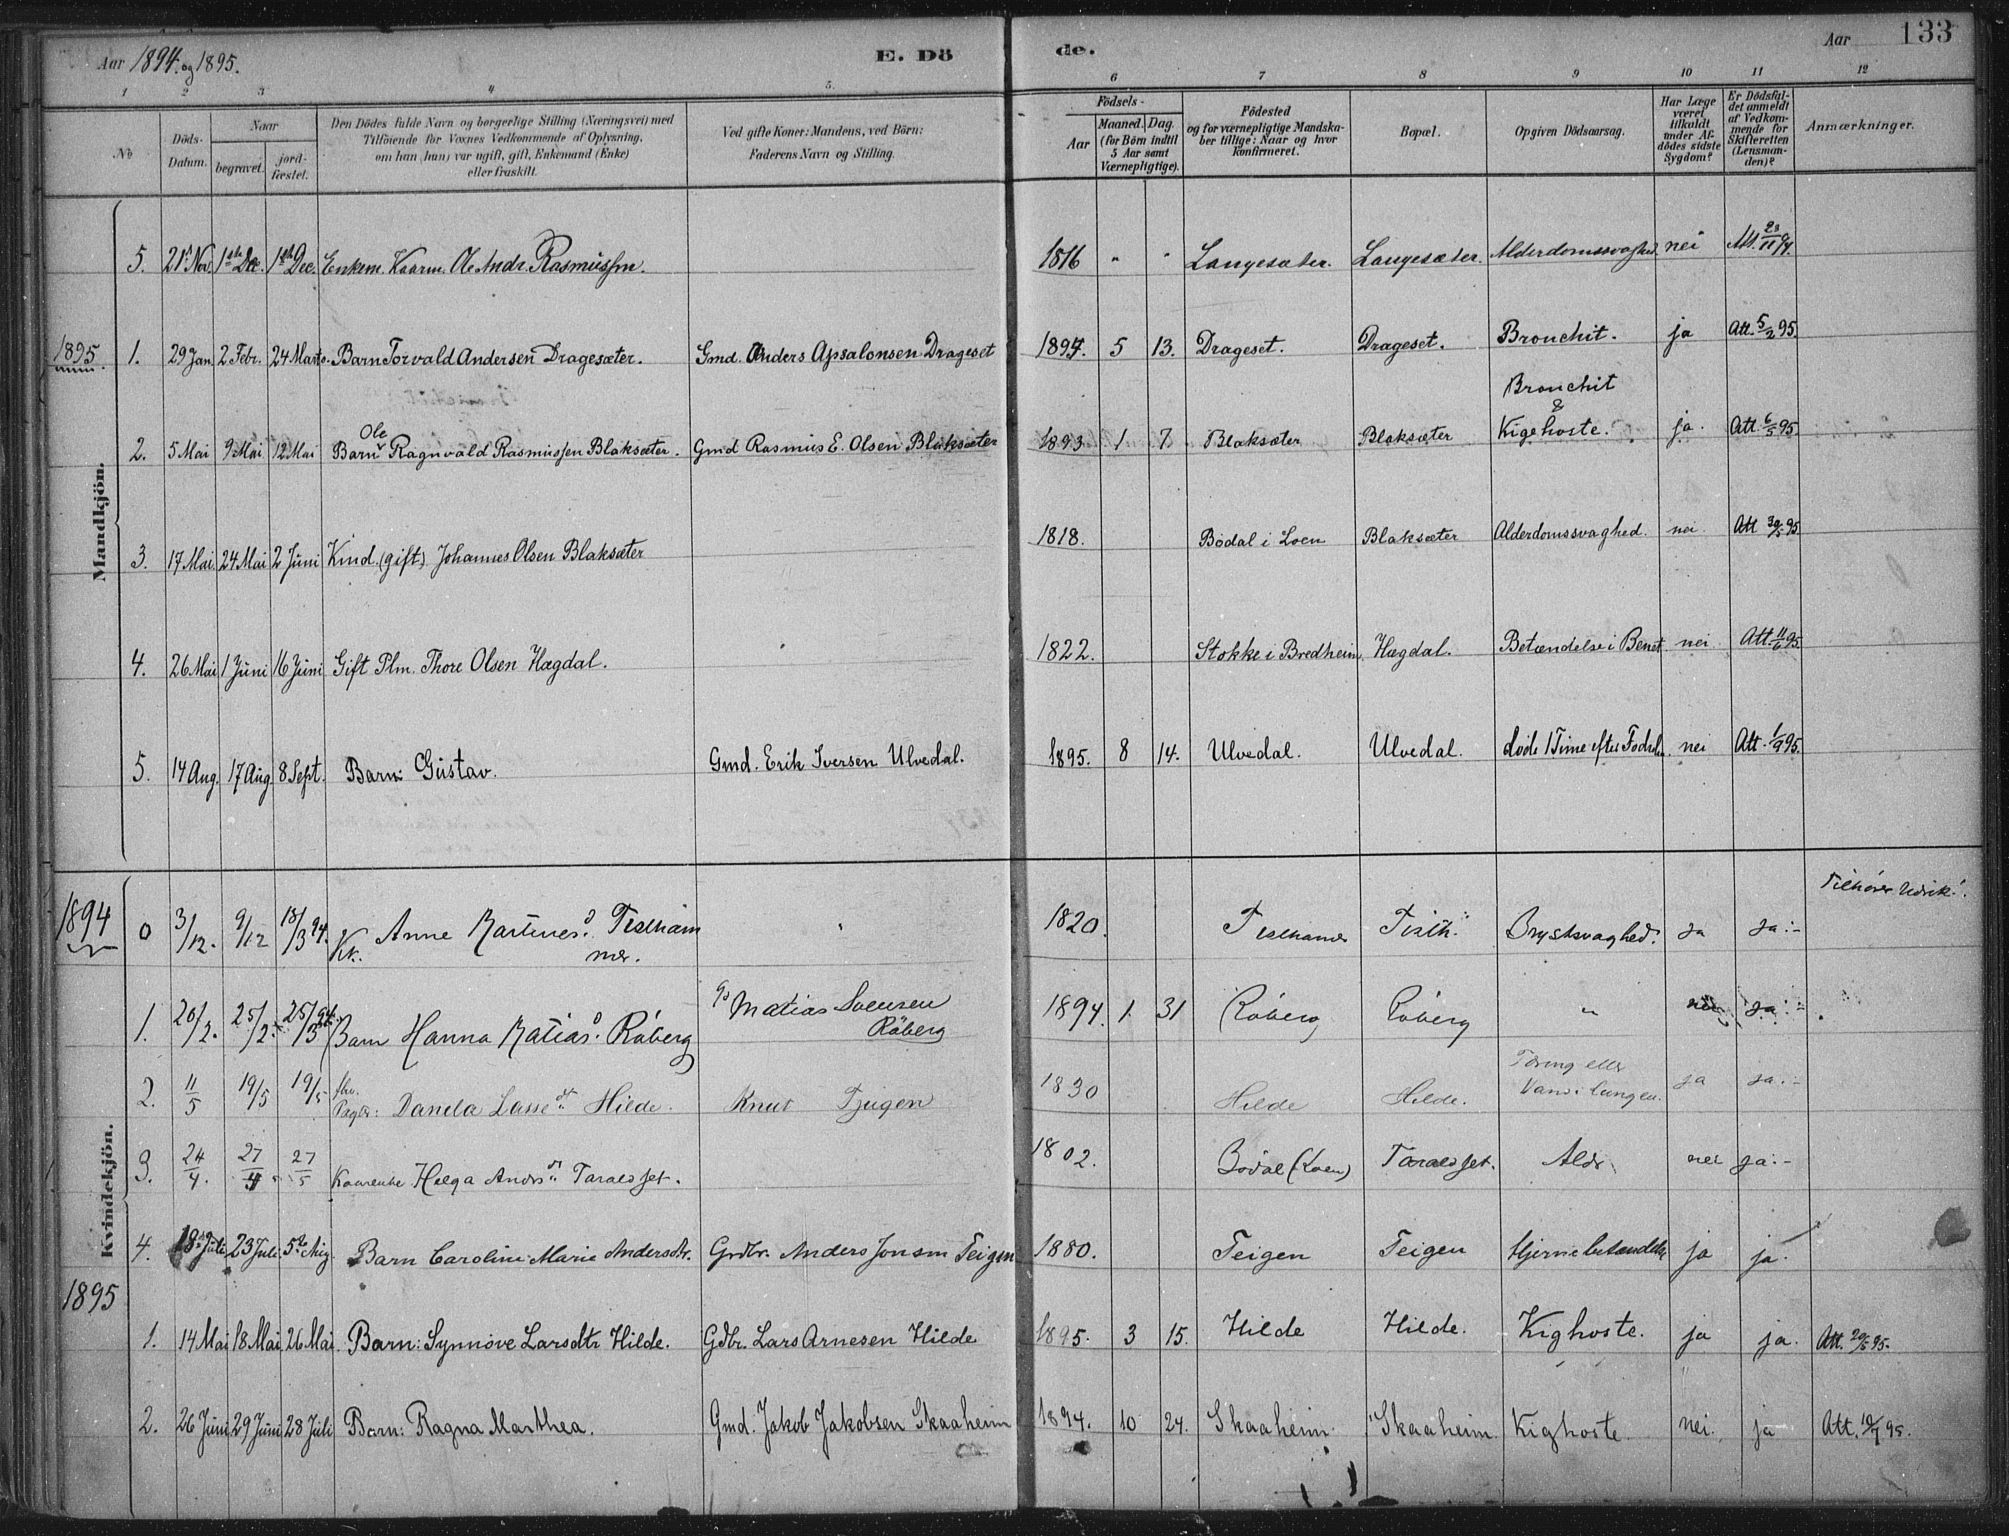 Aar 1894. og 1895.
E. Döde.
Aar 133
1 2 3 4 5. 6 7 8 9 10 11 12
No
Döds-Datum.
Naar
begravet.
jordfæstet.
Den Dödes fulde Navn og borgerlige Stilling (Næringsvei) med
Tilföiende for Voxnes Vedkommende af Oplysning,
om han (hun) var ugift, gift, Enkemand (Enke)
eller fraskilt.
Ved gifte Koner: Mandens, ved Börn:
Faderens Navn og Stilling.
Födsels-
Aar
Maaned. Dag.
(for Börn indtil
5 Aar samt
Værnepligtige).
Födested
og for værnepligtige Mandskaber tillige: Naar og hvor
konfirmeret.
Bopæl.
Opgiven Dödsaarsag.
Har Læge
været
tilkaldt
under Afdödes sidste
Sygdom?
Er Dödsfaldet anmeldt
af Vedkommende for
Skifteretten
(Lensmanden)?
Anmærkninger.
Mandkjön.
5. 21. Nov. 1ste Dec. 1ste Dec. Enkem. Kaarm. Ole Andr. Rasmussen. 1816 " " Langesæter. Langesæter. Alderdomssvaghed. nei Att. 23/11 94.
1895 1. 29 Jan. 2 Febr. 24 Marts. Barn Torvald Andersen Dragesæter. Gmd. Anders Apsalonsen Drageset 1894. 5 13. Drageset. Drageset. Bronchit. ja Att. 5/2 95.
2. 5 Mai 9 Mai 12 Mai Barn Ole Ragnvald Rasmussen Blaksæter. Gmd Rasmus E. Olsen Blaksæter 1893 1 7. Blaksæter Blaksæter Bronchit & Kighoste. ja. Att. 6/5 95
3. 17 Mai. 24 Mai 2 Juni Kind. (gift) Johannes Olsen Blaksæter 1818. Bödal i Loen Blaksæter Alderdomssvaghed. nei Att 30/5 95
4. 26 Mai 1 Juni 16 Juni Gift Plm. Thore Olsen Hægdal. 1822. Stokke i Bredheim Hægdal. Betændelse i Benet nei Att. 11/6 95.
5. 14 Aug. 17 Aug 8 Sept. Barn: Gustav. Gmd. Erik Iversen Ulvedal. 1895. 8 14. Ulvedal. Ulvedal. döde 1 Time efter Födselen nei Att. 1/9 95.
Kvindekjön.
1894 0 3/12. 9/12 18/3 94. Kk. Anne Martines d. Tislhammer. " 1820. Tislhamer Tislh. Brystsvaghed. ja ja:-
1. 20/2. 25/2. 25/3 94 Barn Hanna Matias d. Råberg Matias Svensen Råberg 1894. 1. 31 Råberg Råberg " nei ja:-
2. 11/5 19/5 19/5 Danela Lasse dt. Hilde. Knut Tjugen 1830 Hilde Hilde. Tæring eller Vand i lungen. ja ja:-
3. 24/4. 27/4. 27/5 Kaarenke Helga Andrs dt. Taraldset. 1802. Bödal (Loen) Taraldset. Aldr. nei ja:-
4. 18de Juli 23 Juli 5te Aug. Barn Caroline Marie Andersdtr. Grdbr. Anders Jonsen Teigen 1880. Teigen Teigen Hjernebetændelse ja ja.
1895
1. 14 Mai 18 Mai 26 Mai. Barn: Synnöve Larsdtr Hilde. Gdbr. Lars Arnesen Hilde 1895. 3 15. Hilde Hilde. Kighoste. ja ja. Att. 20/5 95.
2. 26 Juni 29 Juni 28 Juli Barn: Ragna Marthea. Gmd. Jakob Jakobsen Skaaheim 1894. 10 24. Skaaheim. Skaaheim. Kighoste. nei. ja Att. 10/7 95.